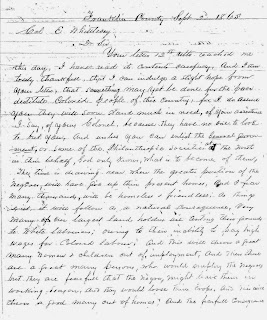 Franklin County Sept 3d 1865
Col E Whittlesey
Dr Sir
Your letter 12th ulto reached me
this day. I have read its contents carefully, and I am
truly thankful, that I can indulge a slight hope from
your letter, that something may yet be done for the poor
destitute Colored people of this County, for I do assure
you they will soon stand much in need, of your assistance
I say, of yours, because they have no one to look
to but you, and unless you can enlist the General Govern
ment, or some of the Philanthropic Societies at the North
in their behalf, God only knows, what is to become of them,
The time is drawing near when the greater portion of the
Negroes, will have to give up their present homes, and I fear
many thousands, will be homeless & friendless, as things
exist it will follow as a natural consequence, Very
many of our largest land holders are renting their farms
to White laborours; owing to their inability to pay high
wages for Colored labour; and this will throw a great
many Women & children out of employment, and then there
are a great many persons, who would employ the negroes
but they are fearful that the negroes, might leave them in
working season, and they would loose their crops, and this will
throw a good many out of homes, and the perfect